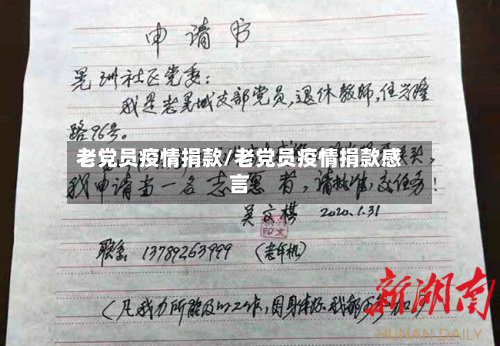 申请书
晃洲社区党委：
我是老晃城支部党员，退休教师，住兴隆
路96号。
老党员疫情捐款/老党员疫情捐款感
言
我申请当一名志愿者，请批准，交任务！
吴文棋 2020.1.31
联系 13789263999 （老年机）
（凡我力所能及的工作，因身体好，我都可参加
新湖南
HUNAN DAILY